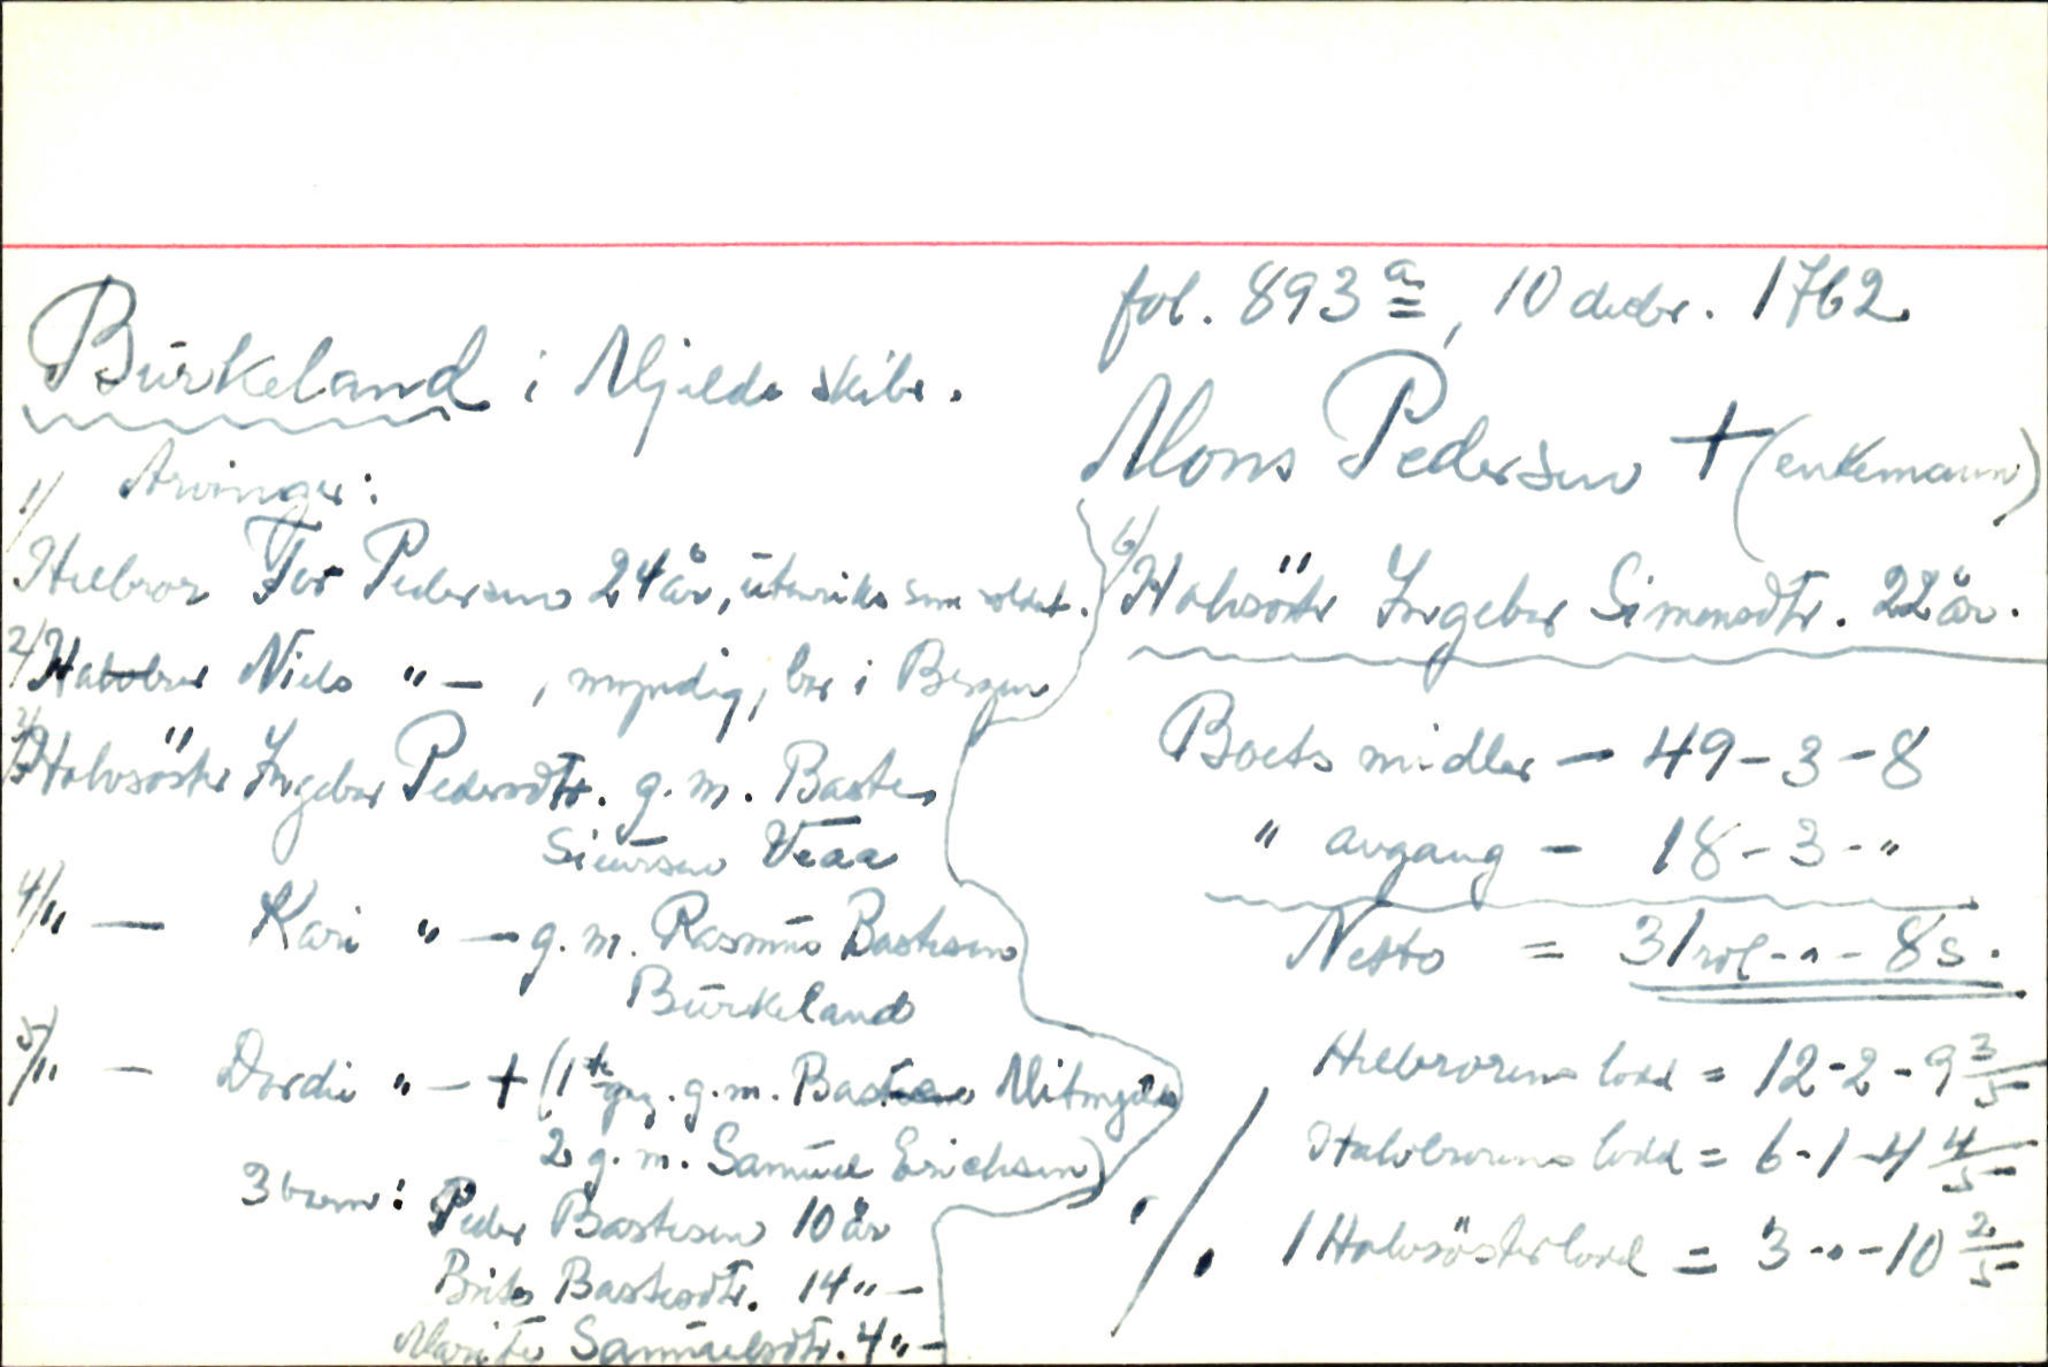 fol. 893 a, 10 decbr. 1762
Burkeland i Mjelde skibr.
Mons Pedersen + (enkemann)
Arvinger:
1/
Helbror Tor Pedersen 24 år, utenriks som soldat.
2/ Halvbror Niels "— , myndig, bor i Bergen
3/ Halvsöster Ingebor Pedersdtr. g.m. Baste
Siursen Veaa
4/ " — Kari " — g.m. Rasmus Bastesen
Burkeland
5/ " — Dordie " — + (1te g.m. Baste Mitmyas
2 g.m. Samuel Erichsen)
3 barn: Peder Bastesen 10 år
Brite Bastesdtr. 14 " —
Marite Samuelsdtr. 4 " —
6/ Halvsöster Ingebor Simensdtr. 22 år.
Boets midler — 49 - 3 - 8
" avgang — 18 - 3 - "
Netto = 31 rdl - " - 8 s.
Helbrorens lodd = 12 - 2 - 9 3/5
Halvbrorens lodd = 6 - 1 - 4 4/5
1 Halvsösterlodd = 3 - " - 10 2/5